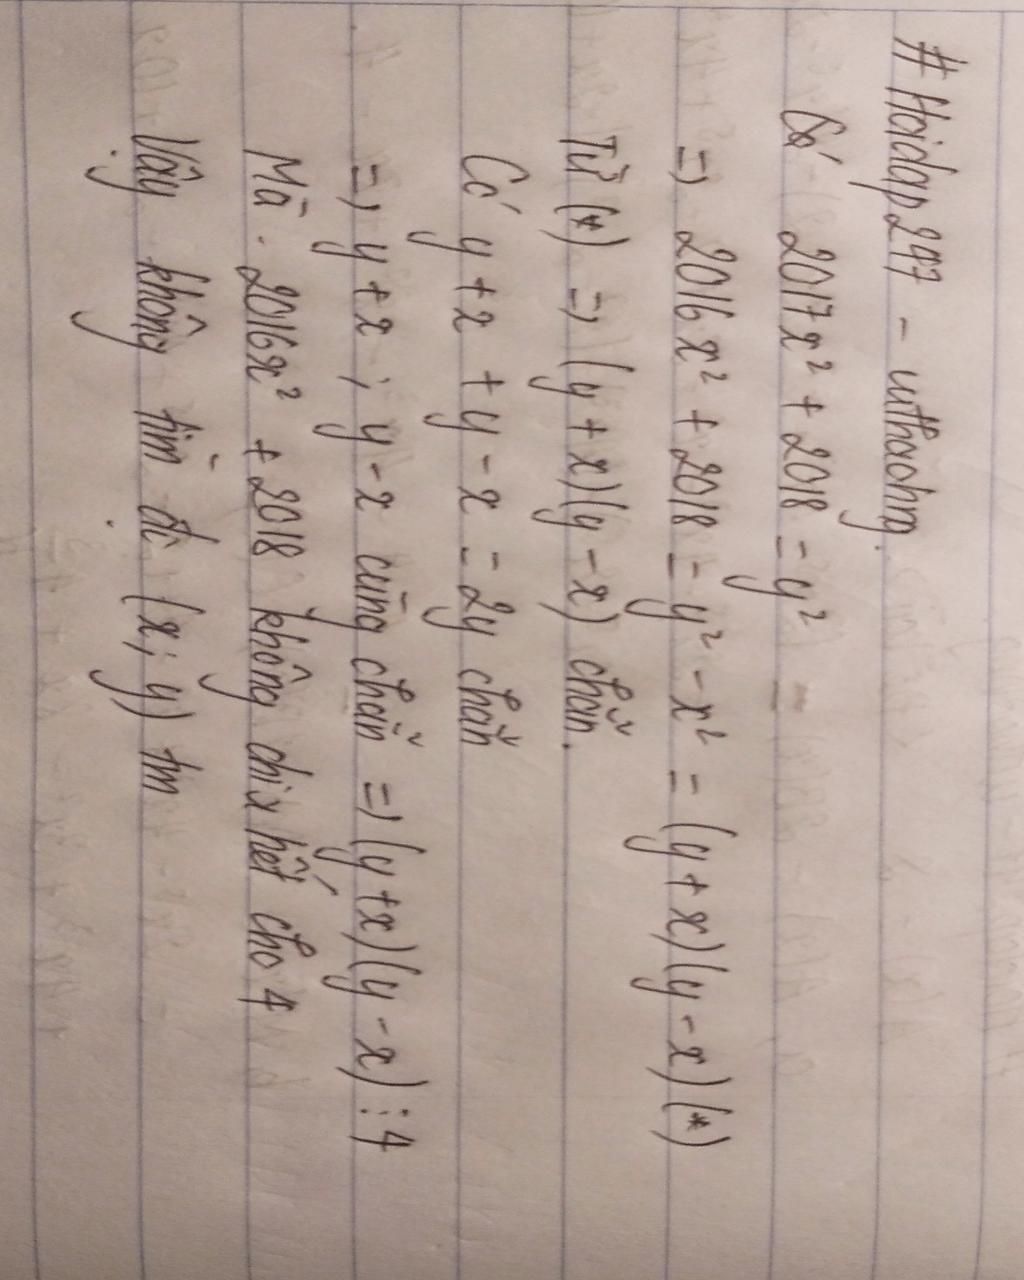 # Hoidap247 - uthaohg
Có 2017x² + 2018 = y²
=> 2016x² + 2018 = y² - x² = (y + x)(y - x) (*)
Từ (*) => (y + x)(y - x) chẵn.
Có y + x + y - x = 2y chẵn
=> y + x ; y - x cùng chẵn => (y + x)(y - x) ⋮ 4
Mà 2016x² + 2018 không chia hết cho 4
Vậy không tìm đc (x; y) tm